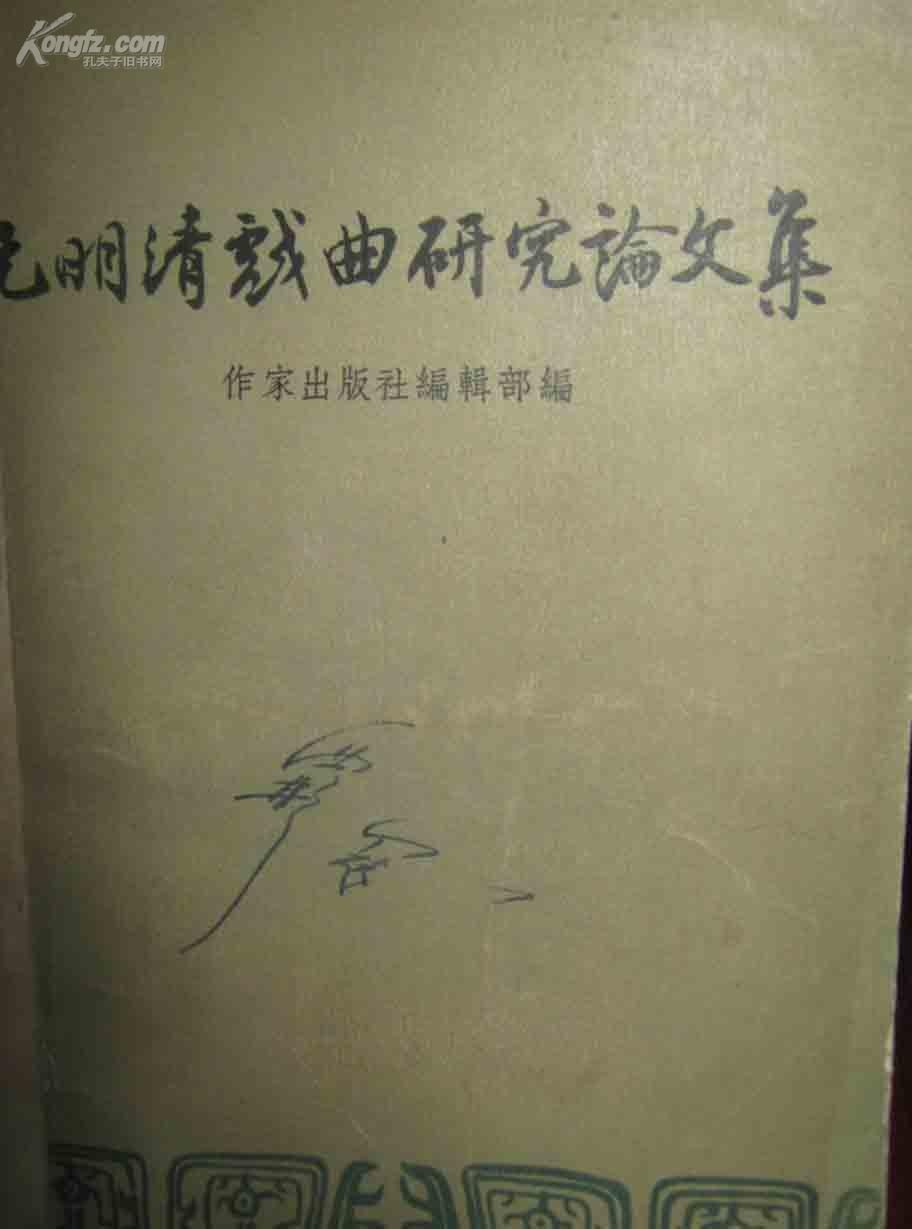 Kongfz.com
孔夫子旧书网
元明清戏曲研究論文集
作家出版社編輯部編